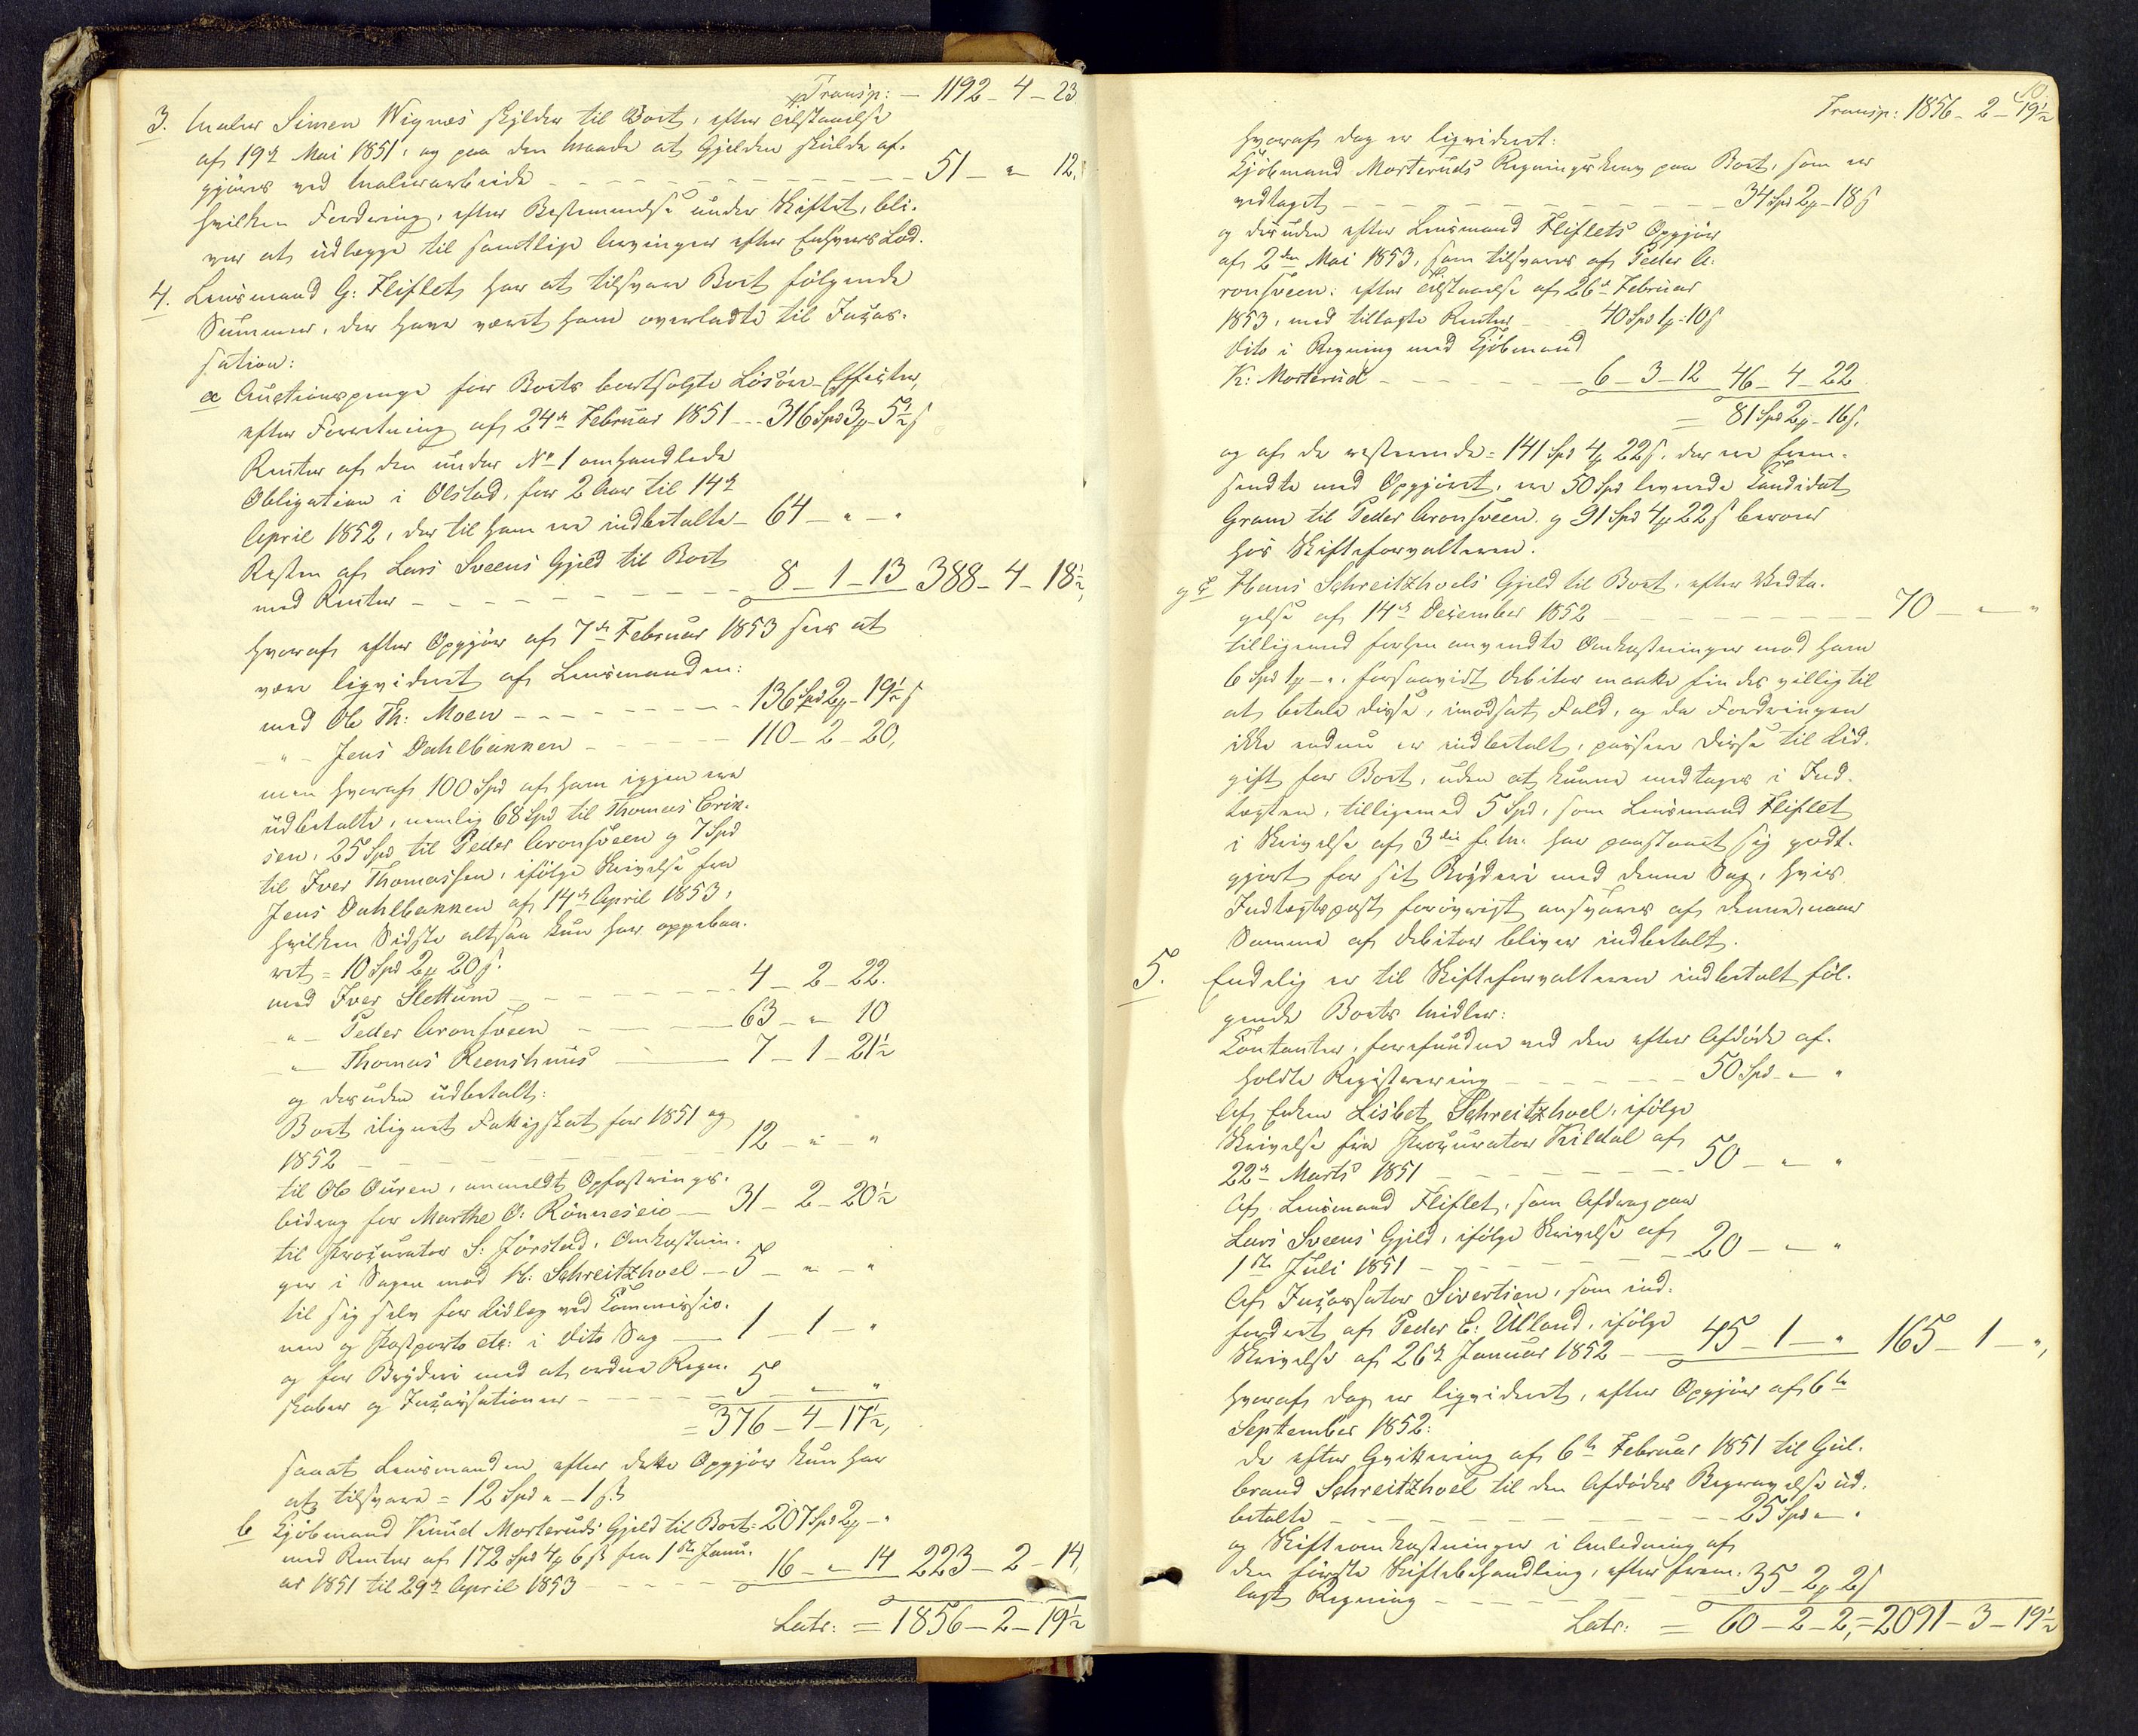 Transp: — 1192 – 4 – 23.
3. Maler Simen Wignæs skylder til Boet, efter Tilstaaelse
af 19de Mai 1851, og paa den Maade at Gjelden skulde af-
gjøres ved Malerarbeide — 51 – " – 12.
hvilken Fordring, efter Bestemmelse under Skiftet, bli-
ver at udlægge til samtlige Arvinger efter Enhvers Lod.
4. Lensmand G: Fliflet har at tilsvare Boet følgende
Summer, der have været ham overladte til Incas-
sation:
a Auctionspenge for Boets bortsolgte Løsøre-Effecter,
efter Forretning af 24de Februar 1851 — 316 Spd 3 ₰ – 5½ s
Renter af den under No 1 omhandlede
Obligation i Olstad, for 2 Aar til 14de
April 1852, der til ham ere indbetalte – 64 – " – "
Resten af Lars Sveens Gjeld til Boet
med Renter — 8 – 1 – 13 388 – 4 – 18½,
hvoraf efter Opgjør af 7de Februar 1853 sees at
være liqvideret af Lensmanden:
med Ole Th: Moen — 136 Spd 2 ₰ – 19½ s
– " – Jens Dahlbakken — 110 – 2 – 20,
men hvoraf 100 Spd af ham igjen ere
udbetalte, nemlig 68 Spd til Thomas Erik-
sen, 25 Spd til Peder Aronsveen og 7 Spd
til Iver Thomassen, ifølge Skrivelse fra
Jens Dahlbakken af 14de April 1853,
hvilken Sidste altsaa kun har oppebaa-
ret = 10 Spd 2 ₰ 20 s.
med Iver Slettum — 4 – 2 – 22.
– " – Peder Aronsveen — 63 – " – 10
– " – Thomas Reenshuus — 7 – 1 – 21½
og desuden udbetalt:
Boet ilignet Fattigskat for 1851 og
1852 — 12 – " – "
til Ole Ouren, anmeldt Opfostrings-
bidrag for Marthe O: Rønneseie — 31 – 2 – 20½
til Procurator S: Jørstad, Omkostnin-
ger i Sagen mod H: Schreitzhoel — 5 – " – "
til sig selv for Udlæg ved Commissio-
nen og Postporto etc: i dito Sag — 1 – 1 – "
og for Bryderi med at ordne Regn-
skaber og Incassationer — 5 – " – "
= 376 – 4 – 17½,
saaat Lensmanden efter dette Opgjør kun har
at tilsvare = 12 Spd " – 1 s
b Kjøbmand Knud Morteruds Gjeld til Boet = 207 Spd 2 ₰ – "
med Renter af 172 Spd 4 ₰ 6 s fra 1ste Janu-
ar 1851 til 29de April 1853 — 16 – " – 14 223 – 2 – 14,
Latr: = 1856 – 2 – 19½
10.
Transp: 1856 – 2 – 19½
hvoraf dog er liqvideret:
Kjøbmand Morteruds Regningskrav paa Boet, som er
vedtaget — 34 Spd 2 ₰ – 18 s
og desuden efter Lensmand Fliflets Opgjør
af 2den Mai 1853, som tilsvares af Peder A-
ronsveen: efter Tilstaaelse af 26de Februar
1853, med tillagte Renter — 40 Spd 1 ₰ – 10 s
dito i Regning med Kjøbmand
K: Morterud — 6 – 3 – 12 46 – 4 – 22
= 81 Spd 2 ₰ – 16 s.
og af de resterende = 141 Spd 4 ₰ 22 s. der ere frem-
sendte med Opgjøret, ere 50 Spd leverede Candidat
Gram til Peder Aronsveen, og 91 Spd 4 ₰ 22 s beroer
hos Skifteforvalteren.
og c Hans Schreitzhoels Gjeld til Boet, efter Vedta-
gelse af 14de December 1852 — 70 – " – "
tilligemed forhen anvendte Omkostninger mod ham
6 Spd 1 ₰ – ". forsaavidt Debitor maatte findes villig til
at betale disse, imodsat Fald, og da Fordringen
ikke endnu er indbetalt, passere disse til Ud-
gift for Boet, uden at kunne medtages i Ind-
tægten, tilligemed 5 Spd, som Lensmand Fliflet
i Skrivelse af 3die f. M. har paastaaet sig godt-
gjort for sit Bryderi med denne Sag, hvis
Indtægtspost forøvrigt ansvares af denne, naar
Samme af Debitor bliver indbetalt.
5. Endelig er til Skifteforvalteren indbetalt føl-
gende Boets Midler:
Contanter, forefundne ved den efter Afdøde af-
holdte Registrering — 50 Spd – " – "
Af Enken Lisbet Schreitzhoel, ifølge
Skrivelse fra Procurator Kildal af
22de Marts 1851 — 50 – " – "
Af Lensmand Fliflet, som Afdrag paa
Lars Sveens Gjeld, ifølge Skrivelse af
1ste Juli 1851 — 20 – " – "
Af Incassator Sivertsen, som ind-
fordret af Peder E: Ulland, ifølge
Skrivelse af 26de Januar 1852 — 45 – 1 – " 165 – 1 – ",
hvoraf dog er liqvideret, efter Opgjør af 6te
September 1852:
De efter Qvittering af 6te Februar 1851 til Gul-
brand Schreitzhoel til den Afdødes Begravelse ud-
betalte — 25 Spd – " – "
og Skifteomkostninger i Anledning af
den første Skiftebehandling, efter frem-
lagt Regning — 35 – 2 ₰ 2 s
Latr: = 60 – 2 – 2, = 2091 – 3 – 19½